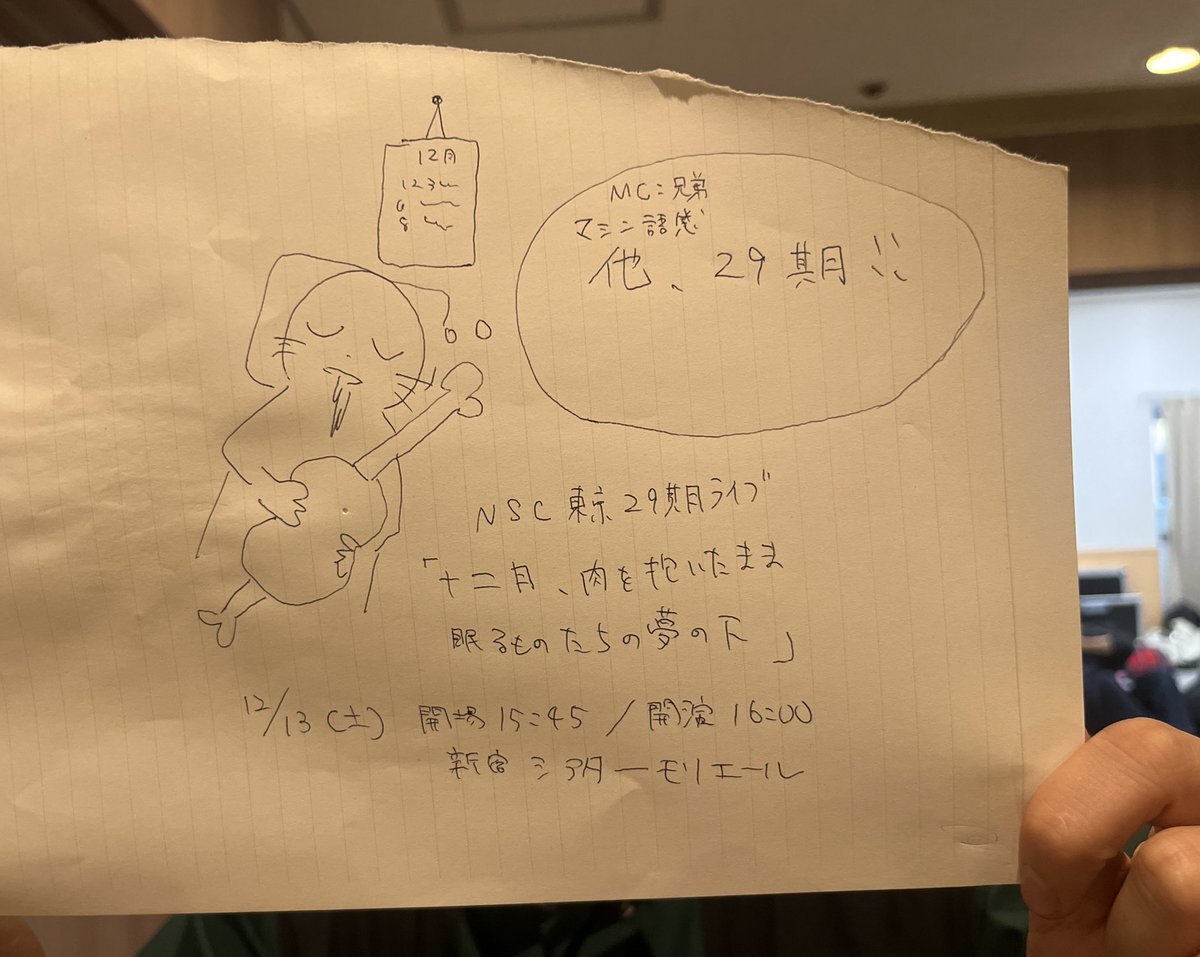 12月
123
6
8
MC:兄弟
マシン語感
他、29期!!
NSC東京29期ライブ
「十二月、肉を抱いたまま
眠るものたちの夢の下」
12/13(土) 開場15:45/開演16:00
新宿シアターモリエール